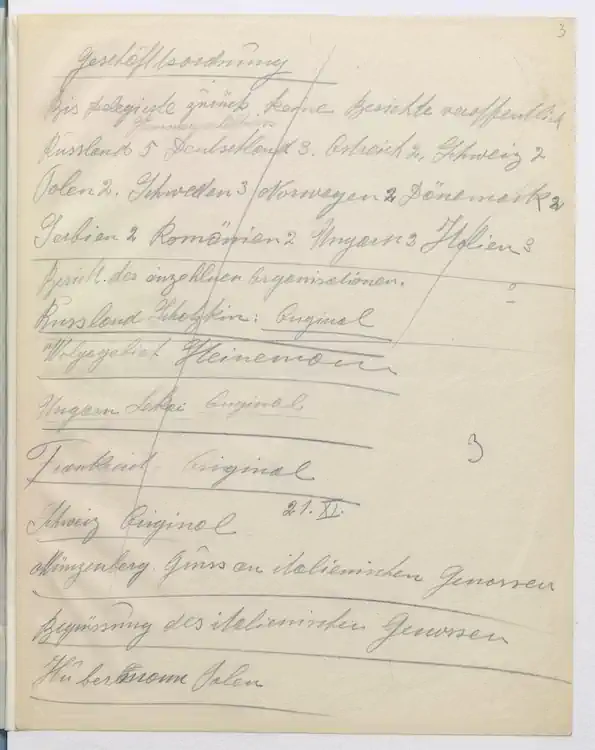 3
Geschäftsordnung
Bis Delegierte zurück keine Berichte veröffentlich
Russland 5 Deutschland 3. Östreich 2, Schweiz 2
Polen 2. Schweden 3 Norwegen 2 Dänemark 2
Serbien 2 Romänien 2 Ungarn 3 Italien 3
Bericht des einzehlnen Organisationen.
Russland Schatzkin: Original
Wolgagebiet Heinemann
Ungarn Lekai Original
3
Frankreich Original
21. XI.
Schweiz Original
Münzenberg Gruss an italienischen Genossen
Begrüssung des italienischen Genossen
Polen